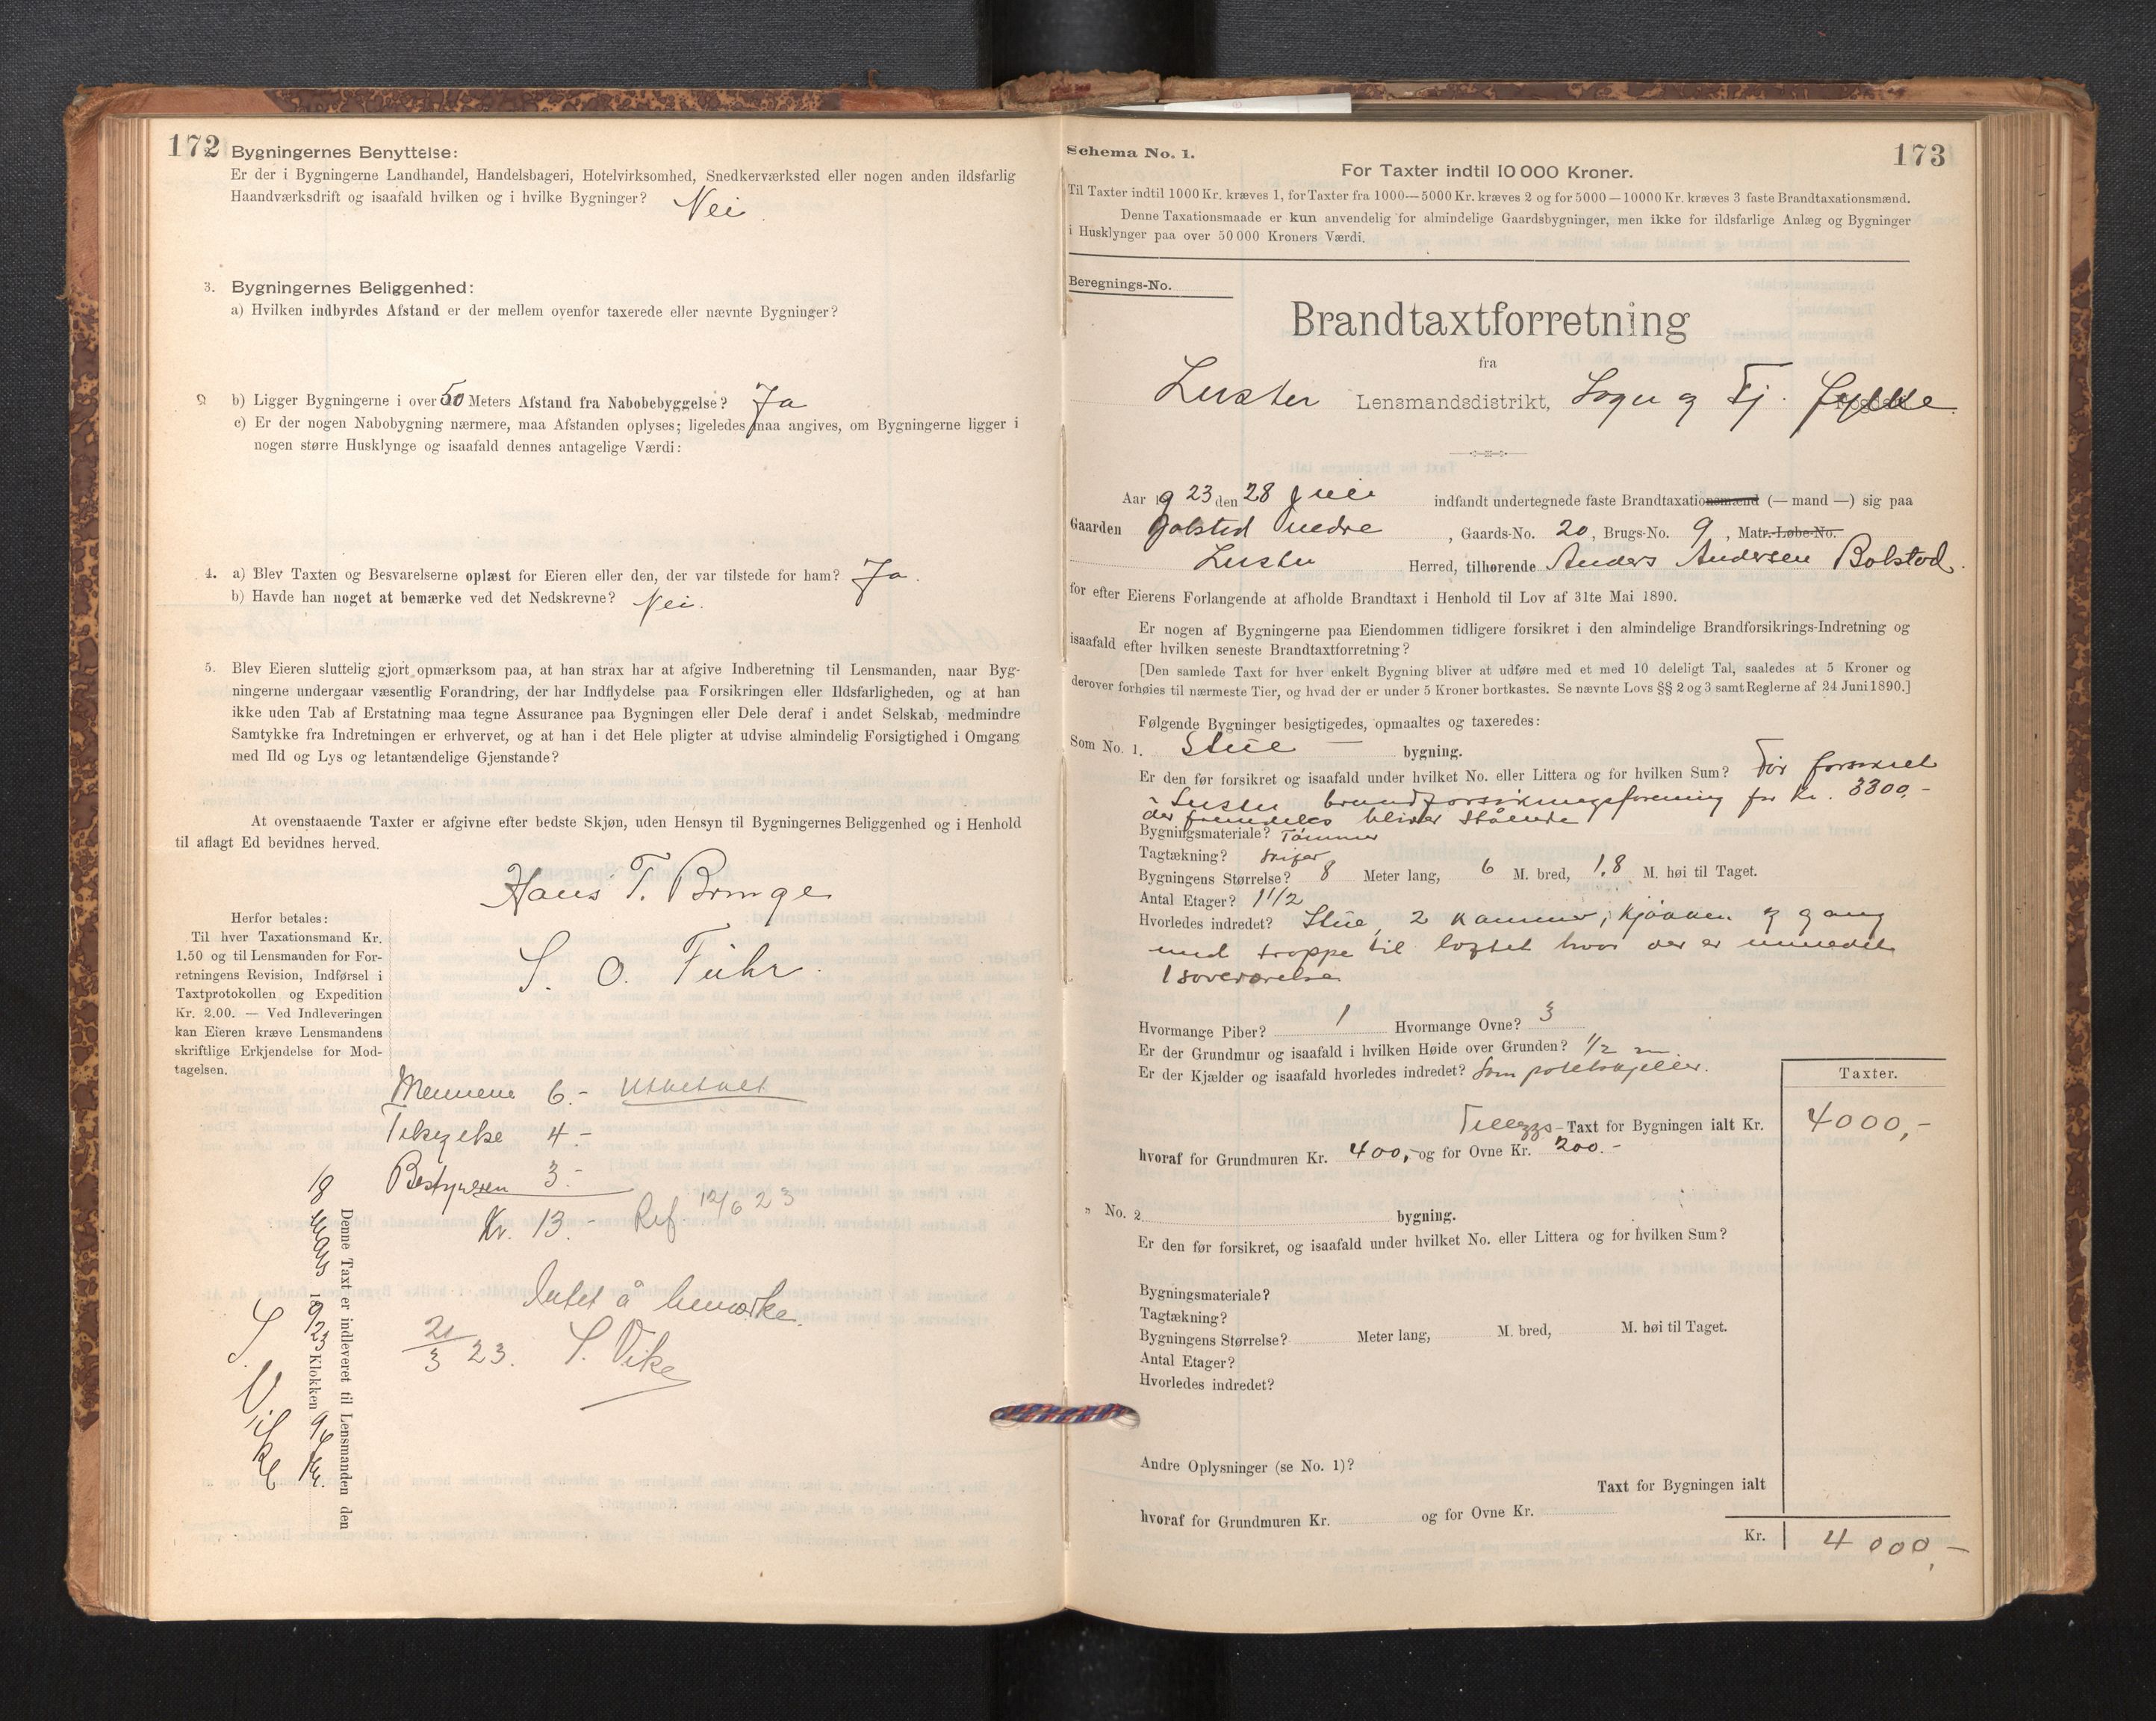 172
Bygningernes Benyttelse:
Er der i Bygningerne Landhandel, Handelsbageri, Hotelvirksomhed, Snedkerværksted eller nogen anden ildsfarlig
Haandværksdrift og isaafald hvilken og i hvilke Bygninger? Nei.
3. Bygningernes Beliggenhed:
a) Hvilken indbyrdes Afstand er der mellem ovenfor taxerede eller nævnte Bygninger?
b) Ligger Bygningerne i over 50 Meters Afstand fra Nabobebyggelse? Ja
c) Er der nogen Nabobygning nærmere, maa Afstanden oplyses; ligeledes maa angives, om Bygningerne ligger i
nogen større Husklynge og isaafald dennes antagelige Værdi:
4. a) Blev Taxten og Besvarelserne oplæst for Eieren eller den, der var tilstede for ham? Ja.
b) Havde han noget at bemærke ved det Nedskrevne? Nei.
5. Blev Eieren sluttelig gjort opmærksom paa, at han strax har at afgive Indberetning til Lensmanden, naar Byg-
ningerne undergaar væsentlig Forandring, der har Indflydelse paa Forsikringen eller Ildsfarligheden, og at han
ikke uden Tab af Erstatning maa tegne Assurance paa Bygningen eller Dele deraf i andet Selskab, medmindre
Samtykke fra Indretningen er erhvervet, og at han i det Hele pligter at udvise almindelig Forsigtighed i Omgang
med Ild og Lys og letantændelige Gjenstande?
At ovenstaaende Taxter er afgivne efter bedste Skjøn, uden Hensyn til Bygningernes Beliggenhed og i Henhold
til aflagt Ed bevidnes herved.
Hans T. Bringe
S. O. Fuhr.
Herfor betales:
Til hver Taxationsmand Kr.
1.50 og til Lensmanden for For-
retningens Revision, Indførsel i
Taxtprotokollen og Expedition
Kr. 2.00. — Ved Indleveringen
kan Eieren kræve Lensmandens
skriftlige Erkjendelse for Mod-
tagelsen.
Mennene 6.- utbetalt
4 -
Bestyreren 3.-
Kr. 13.- Ref 12/6 23
Intet å bemærke.
21/3 23. S. Vike
Denne Taxt er indleveret til Lensmanden den
18 mars 1923 Klokken
S. Vike
173
Schema No. 1.
For Taxter indtil 10 000 Kroner.
Til Taxter indtil 1000 Kr. kræves 1, for Taxter fra 1000—5000 Kr. kræves 2 og for 5000—10000 Kr. kræves 3 faste Brandtaxationsmænd.
Denne Taxationsmaade er kun anvendelig for almindelige Gaardsbygninger, men ikke for ildsfarlige Anlæg og Bygninger
i Husklynger paa over 50 000 Kroners Værdi.
Beregnings-No.
Brandtaxtforretning
fra
Luster Lensmandsdistrikt, Sogn og Fj. fylke
Aar 1923 den 28 indfandt undertegnede faste Brandtaxationsmænd (— mand —) sig paa
Gaarden Bolstad nedre, Gaards-No. 20, Brugs-No. 9, Matr.-Løbe-No.
Luster Herred, tilhørende Anders Andersen Bolstad.
for efter Eierens Forlangende at afholde Brandtaxt i Henhold til Lov af 31te Mai 1890.
Er nogen af Bygningerne paa Eiendommen tidligere forsikret i den almindelige Brandforsikrings-Indretning og
isaafald efter hvilken seneste Brandtaxtforretning?
[Den samlede Taxt for hver enkelt Bygning bliver at udføre med et med 10 deleligt Tal, saaledes at 5 Kroner og
derover forhøies til nærmeste Tier, og hvad der er under 5 Kroner bortkastes. Se nævnte Lovs §§ 2 og 3 samt Reglerne af 24 Juni 1890.]
Følgende Bygninger besigtigedes, opmaaltes og taxeredes:
Som No. 1. Stue — bygning.
Er den før forsikret og isaafald under hvilket No. eller Littera og for hvilken Sum? Før forsikret
i Luster brandforsikringsforening for kr. 3300,-
der fremdeles bliver stående
Bygningsmateriale? Tømmer
Tagtækning? skifer
Bygningens Størrelse? 8 Meter lang, 6 M. bred, 1,8 M. høi til Taget.
Antal Etager? 1 1/2
Hvorledes indredet? Stue, 2 kammer, kjøkken og gang
med trappe til loftet hvor der er innredet
1 soverærelse
Hvormange Piber? 1 Hvormange Ovne? 3
Er der Grundmur og isaafald i hvilken Høide over Grunden? 1/2 m.
Er der Kjælder og isaafald hvorledes indredet? Som potetkjeller.
Taxter.
Tillegs-Taxt for Bygningen ialt Kr. 4000,-
hvoraf for Grundmuren Kr. 400,- og for Ovne Kr. 200.-
" No. 2 bygning.
Er den før forsikret, og isaafald under hvilket No. eller Littera og for hvilken Sum?
Bygningsmateriale?
Tagtækning?
Bygningens Størrelse? Meter lang, M. bred, M. høi til Taget.
Antal Etager?
Hvorledes indredet?
Andre Oplysninger (se No. 1)?
Taxt for Bygningen ialt
hvoraf for Grundmuren Kr. og for Ovne Kr.
Kr. 4000,-